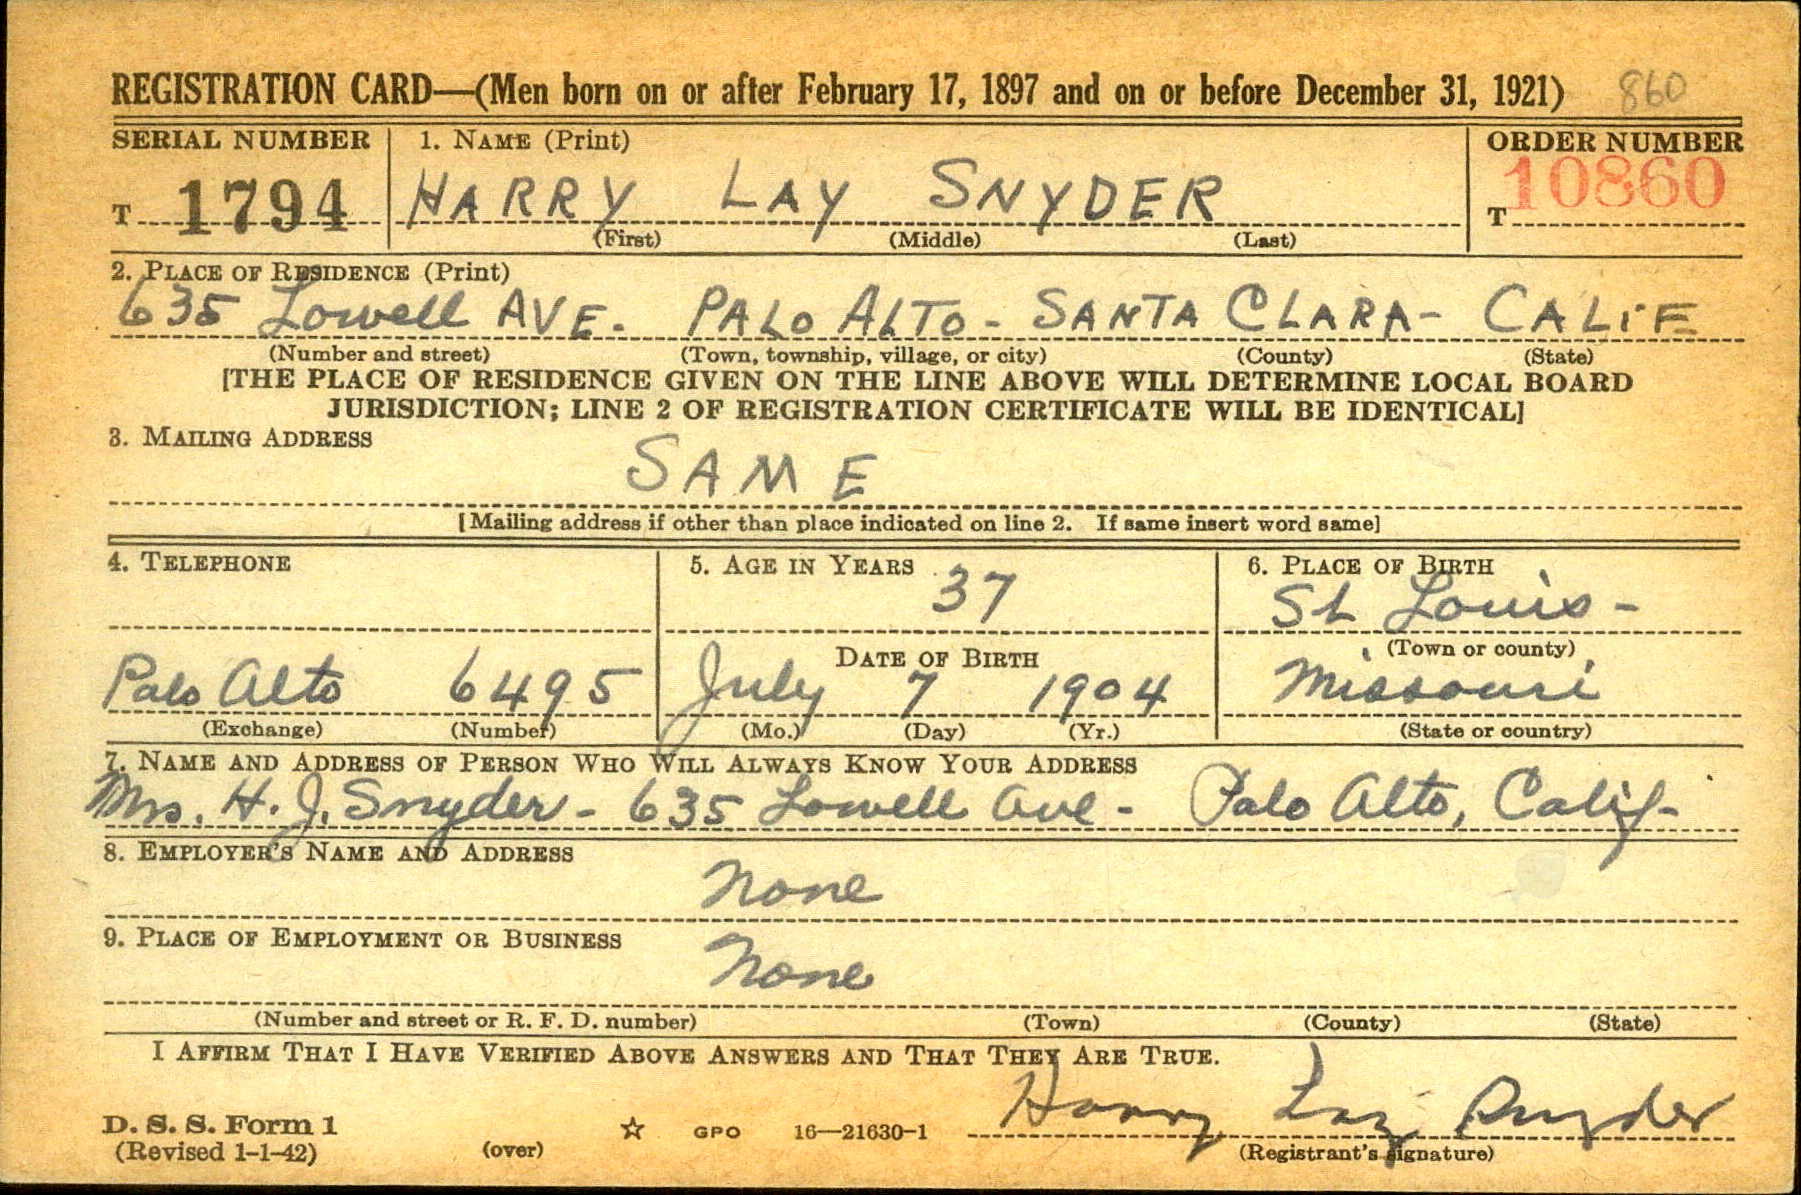 REGISTRATION CARD—(Men born on or after February 17, 1897 and on or before December 31, 1921) 860
SERIAL NUMBER 1. NAME (Print) ORDER NUMBER
T 1794 HARRY LAY SNYDER T 10860
(First) (Middle) (Last)
2. PLACE OF RESIDENCE (Print)
635 Lowell AVE. PALO ALTO - SANTA CLARA - CALIF
(Number and street) (Town, township, village, or city) (County) (State)
[THE PLACE OF RESIDENCE GIVEN ON THE LINE ABOVE WILL DETERMINE LOCAL BOARD
JURISDICTION; LINE 2 OF REGISTRATION CERTIFICATE WILL BE IDENTICAL]
3. MAILING ADDRESS
SAME
[Mailing address if other than place indicated on line 2. If same insert word same]
4. TELEPHONE 5. AGE IN YEARS 6. PLACE OF BIRTH
37 St Louis -
DATE OF BIRTH (Town or county)
Palo Alto 6495 July 7 1904 Missouri
(Exchange) (Number) (Mo.) (Day) (Yr.) (State or country)
7. NAME AND ADDRESS OF PERSON WHO WILL ALWAYS KNOW YOUR ADDRESS
Mrs. H. J. Snyder - 635 Lowell Ave - Palo Alto, Calif-
8. EMPLOYER'S NAME AND ADDRESS
None
9. PLACE OF EMPLOYMENT OR BUSINESS
None
(Number and street or R. F. D. number) (Town) (County) (State)
I AFFIRM THAT I HAVE VERIFIED ABOVE ANSWERS AND THAT THEY ARE TRUE.
Harry Lay Snyder
D. S. S. Form 1
(Revised 1-1-42) (over) ☆ GPO 16—21630-1 (Registrant's signature)